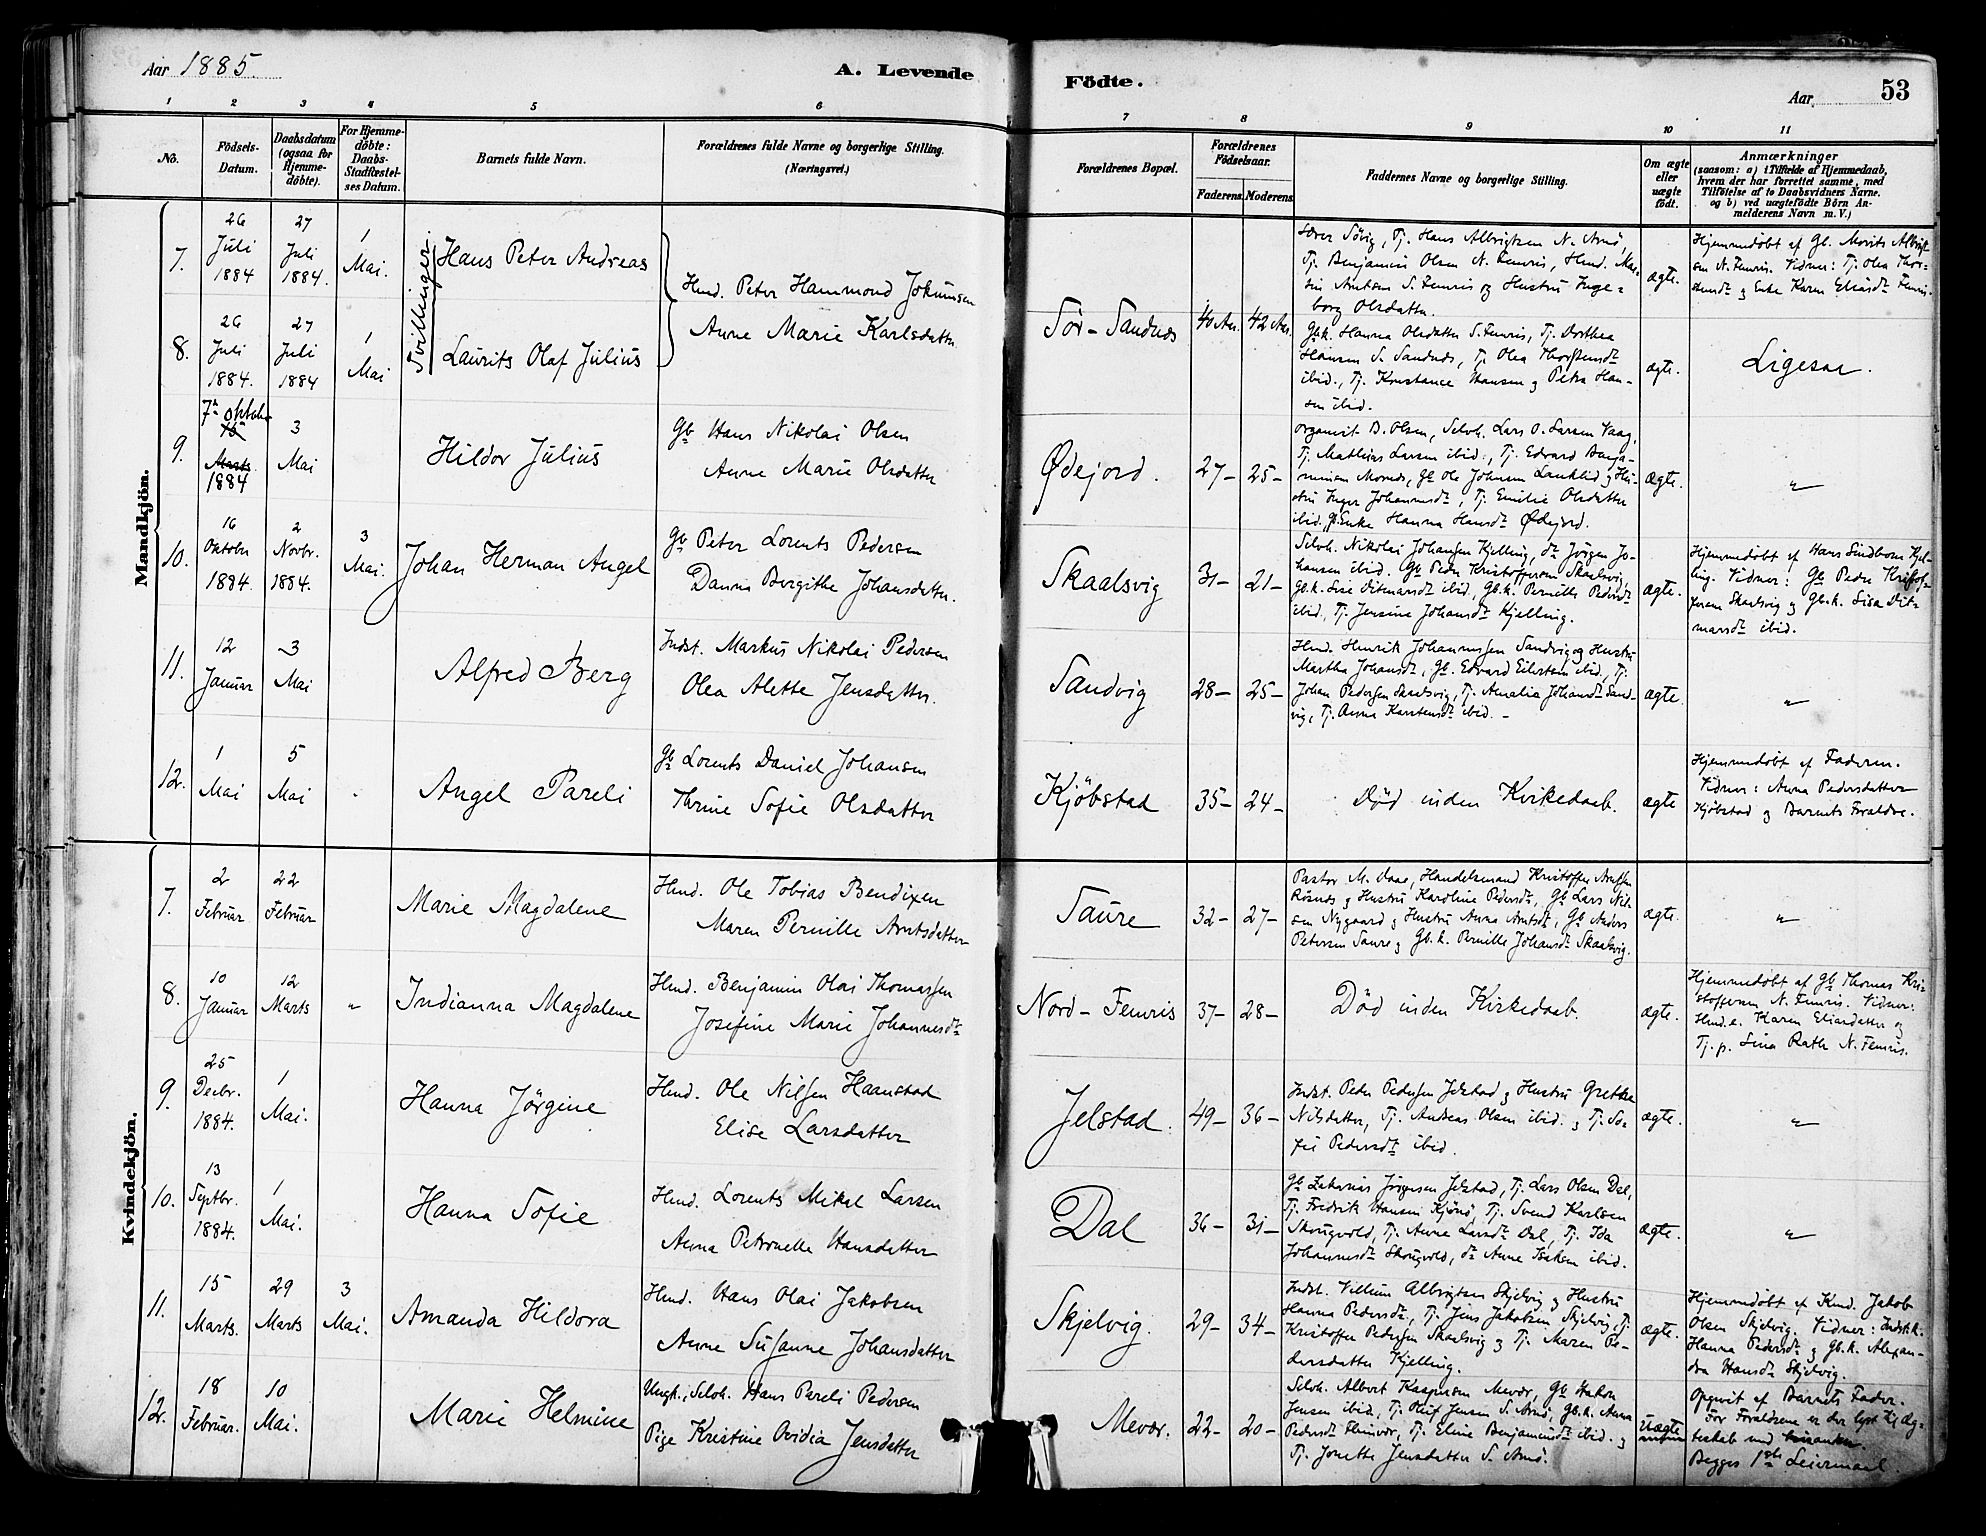 Aar 1885.
A. Levende
Födte.
Aar
53
1 2 3 4 5 6
7 8 9 10 11
No.
Födsels-Datum.
Daabsdatum (ogsaa for Hjemmedöbte).
For Hjemmedöbte: Daabs-Stadfæstelses Datum.
Barnets fulde Navn.
Forældrenes fulde Navne og borgerlige Stilling.
(Næringsvei.)
Forældrenes Bopæl.
Forældrenes Födselsaar.
Faderens.
Moderens.
Faddernes Navne og borgerlige Stilling.
Om ægte eller uægte födt.
Anmærkninger
(saasom: a) i Tilfælde af Hjemmedaab, hvem der har forrettet samme, med Tilföielse af to Daabsvidners Navne. og b) ved uægtefödte Börn Anmelderens Navn m. V.)
Mandkjön.
7.
26 Juli 1884
27 Juli 1884.
1 Mai.
Tvillinger.
Hans Peter Andreas
Hmd. Peter Hammond Jokumsen
Anne Marie Karlsdatter
Sör-Sandnæs
40 Aar.
42 Aar.
Tj. Hans Albrigtsen N. Arnö,
Tj. Benjamin Olsen N. Femris, Hmd.
S. Femris og Hustru Inge-
borg Olsdatter.
ægte.
Hjemmedöbt af Gb. Morits Albrigt-
sen N. Femris. Vidner: Tj. Olea Thor-
stensdr og Enke Karen Eliasdr Femris.
8.
26 Juli 1884.
27 Juli 1884
1 Mai
Laurits Olaf Julius
Gb.k. Hanna Olsdatter S. Femris, Tj. Dorthea
Hansen S. Sandnæs, Tj. Olea Thorstensdr
ibid., Tj. Konstance Hansen og Petra Han-
sen ibid.
ægte.
Ligesaa.
9.
7de oktober
Marts 1884
3 Mai
Hildor Julius
Gb Hans Nikolai Olsen
Anne Marie Olsdatter
Ødejord.
27-
25-
Organist B. Olsen, Selvh. Lars O. Larsen Vaag,
Tj. Mathias Larsen ibid., Tj. Edvard Benja-
minsen Gb Ole Johnsen og Hu-
stru Inger Johannesdr, Tj. Emilie Olsdatter
ibid. og Enke Hanna Hansdr Ødejord.
ægte.
"
10.
16 Oktober 1884
2 Novbr. 1884.
3 Mai.
Johan Herman Angel
Gb Peter Lorents Pedersen
Bergithe Johansdatter.
Skaalsvig
31-
21-
Selvh. Nikolai Johansen Kjelling, do Jörgen Jo-
hansen ibid. Gb Peder Kristoffersen Skaalsvig,
Gb.k. Lise Ditmarsdr ibid, Gb.k. Pernille Pedersdr
ibid, Tj. Jensine Johansdr Kjelling.
ægte.
Hjemmedöbt af Hans Lindbom Kjel-
ling. Vidner: Gb Peder Kristof-
fersen Skaalsvig og Gb.k. Lisa Dit-
marsdr ibid.
11.
12 Januar
3 Mai
Alfred Berg
Indst. Markus Nikolai Pedersen
Olea Alette Jensdatter.
Sandvig
28-
25-
Hmd. Henrik Johannessen Sandvig og Hustru
Martha Johansdr, Gb. Edvard Eilertsen ibid, Tj.
Johan Pedersen Skaalsvig, Tj. Amalia Johansdr Sand-
vig, Tj. Anna Karstensdr ibid. -
ægte.
"
12.
1 Mai
5 Mai
Angel Pareli
Gb Lorents Daniel Johansen
Thrine Sofie Olsdatter
Kjöbstad
35-
24-
Död inden Kirkedaab.
ægte
Hjemmedöbt af Faderen.
Vidner: Anna Pedersdatter
Kjöbstad og Barnets Forældre.
Kvindekjön.
7.
2 Februar
22 Februar
Marie Magdalene
Hmd. Ole Tobias Bendixen
Maren Pernille Arntsdatter
Saure
32-
27-
Pastor M. Aas, Handelsmand Kristoffer Arntsen
Rösnæs og Hustru Karoline Pedersdr, Gb Lars Nil-
sen Nygaard og Hustru Anna Arntsdr, Gb Anders
Petersen Saure og Gb.k. Pernille Johansdr Skaalsvig.
ægte.
"
8.
10 Januar
12 Marts
"
Indianna Magdalene
Hmd. Benjamin Olai Thomassen
Josefine Marie Johannesdr
Nord-Femris
37-
28-
Död inden Kirkedaab.
ægte.
Hjemmedöbt af Gb Thomas Kri-
stoffersen N. Femris. Vidner:
Hmd.e. Karen Eliasdatter og
Tj.p. Lina Rath N. Femris.
9.
25 Decbr. 1884.
1 Mai.
Hanna Jörgine
Hmd. Ole Nilsen Haanstad
Elise Larsdatter
Jelstad.
49-
36-
Indst. Peder Pedersen Jelstad og Hustru Grethe
Nilsdatter, Tj. Andreas Olsen ibid. og Tj. So-
fie Pedersdr ibid.
ægte.
"
10.
13 Septbr. 1884.
1 Mai.
Hanna Sofie
Hmd. Lorents Mikal Larsen
Anna Petronelle Hansdatter
Dal
36-
31-
Gb Zakarias Jörgensen Jelstad, Tj. Lars Olsen Dal,
Tj. Fredrik Hansen Kjönö, Tj. Svend Karlsen
Skougvold, Tj. Anne Larsdr Dal, Tj. Ida
Johannesdr Skougvold, do Anne Isaksen ibid.
ægte.
"
11.
15 Marts.
29 Marts
3 Mai.
Amanda Hildora
Hmd. Hans Olai Jakobsen
Anne Susanne Johansdatter
Skjelvig.
29-
34-
Indst. Villum Albrigtsen Skjelvig og Hustru
Hanna Pedersdr, Tj. Jens Jakobsen Skjelvig, Tj.
Kristoffer Pedersen Skaalsvig og Tj. Maren Pe-
dersdatter Kjelling.
ægte.
Hjemmedöbt af Kmd. Jakob
Olsen Skjelvig. Vidner: Indst.k.
Hanna Pedersdr og Gb.k. Alexan-
dra Hansdr Skjelvig.
12.
18 Februar.
10 Mai.
Marie Helmine
Ungk., Selvh. Hans Pareli Pedersen
Pige Kristine Ovidia Jensdatter
Mevær.
22-
20-
Selvh. Albert Kaspersen Mevær, Gb Hakon
Jensen ibid, Tj. Oluf Jensen S. Arnö, Gb.k. Anna
Pedersdr Tj. Eline Benjaminsdr ibid. og
Tj. Jonette Jensdatter S. Arnö.
Uægte
Opgivit af Barnets Fader.
For Forældrene er der lyst til Æg-
teskab med
Begges 1ste Leiermaal.